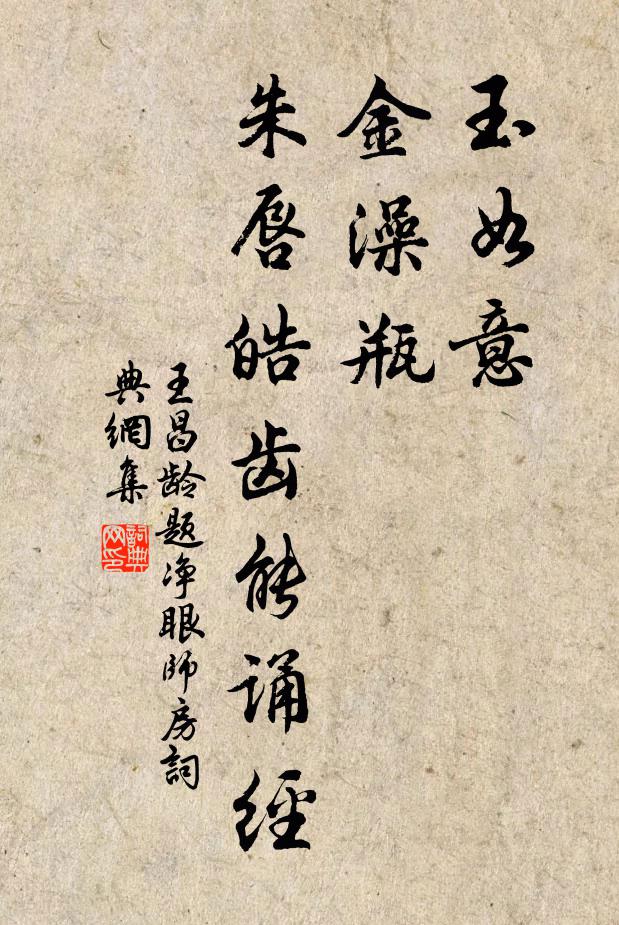 玉如意
金澡瓶
朱唇皓齿能诵經
王昌龄题净眼師房詞
典網集
詞典
网印